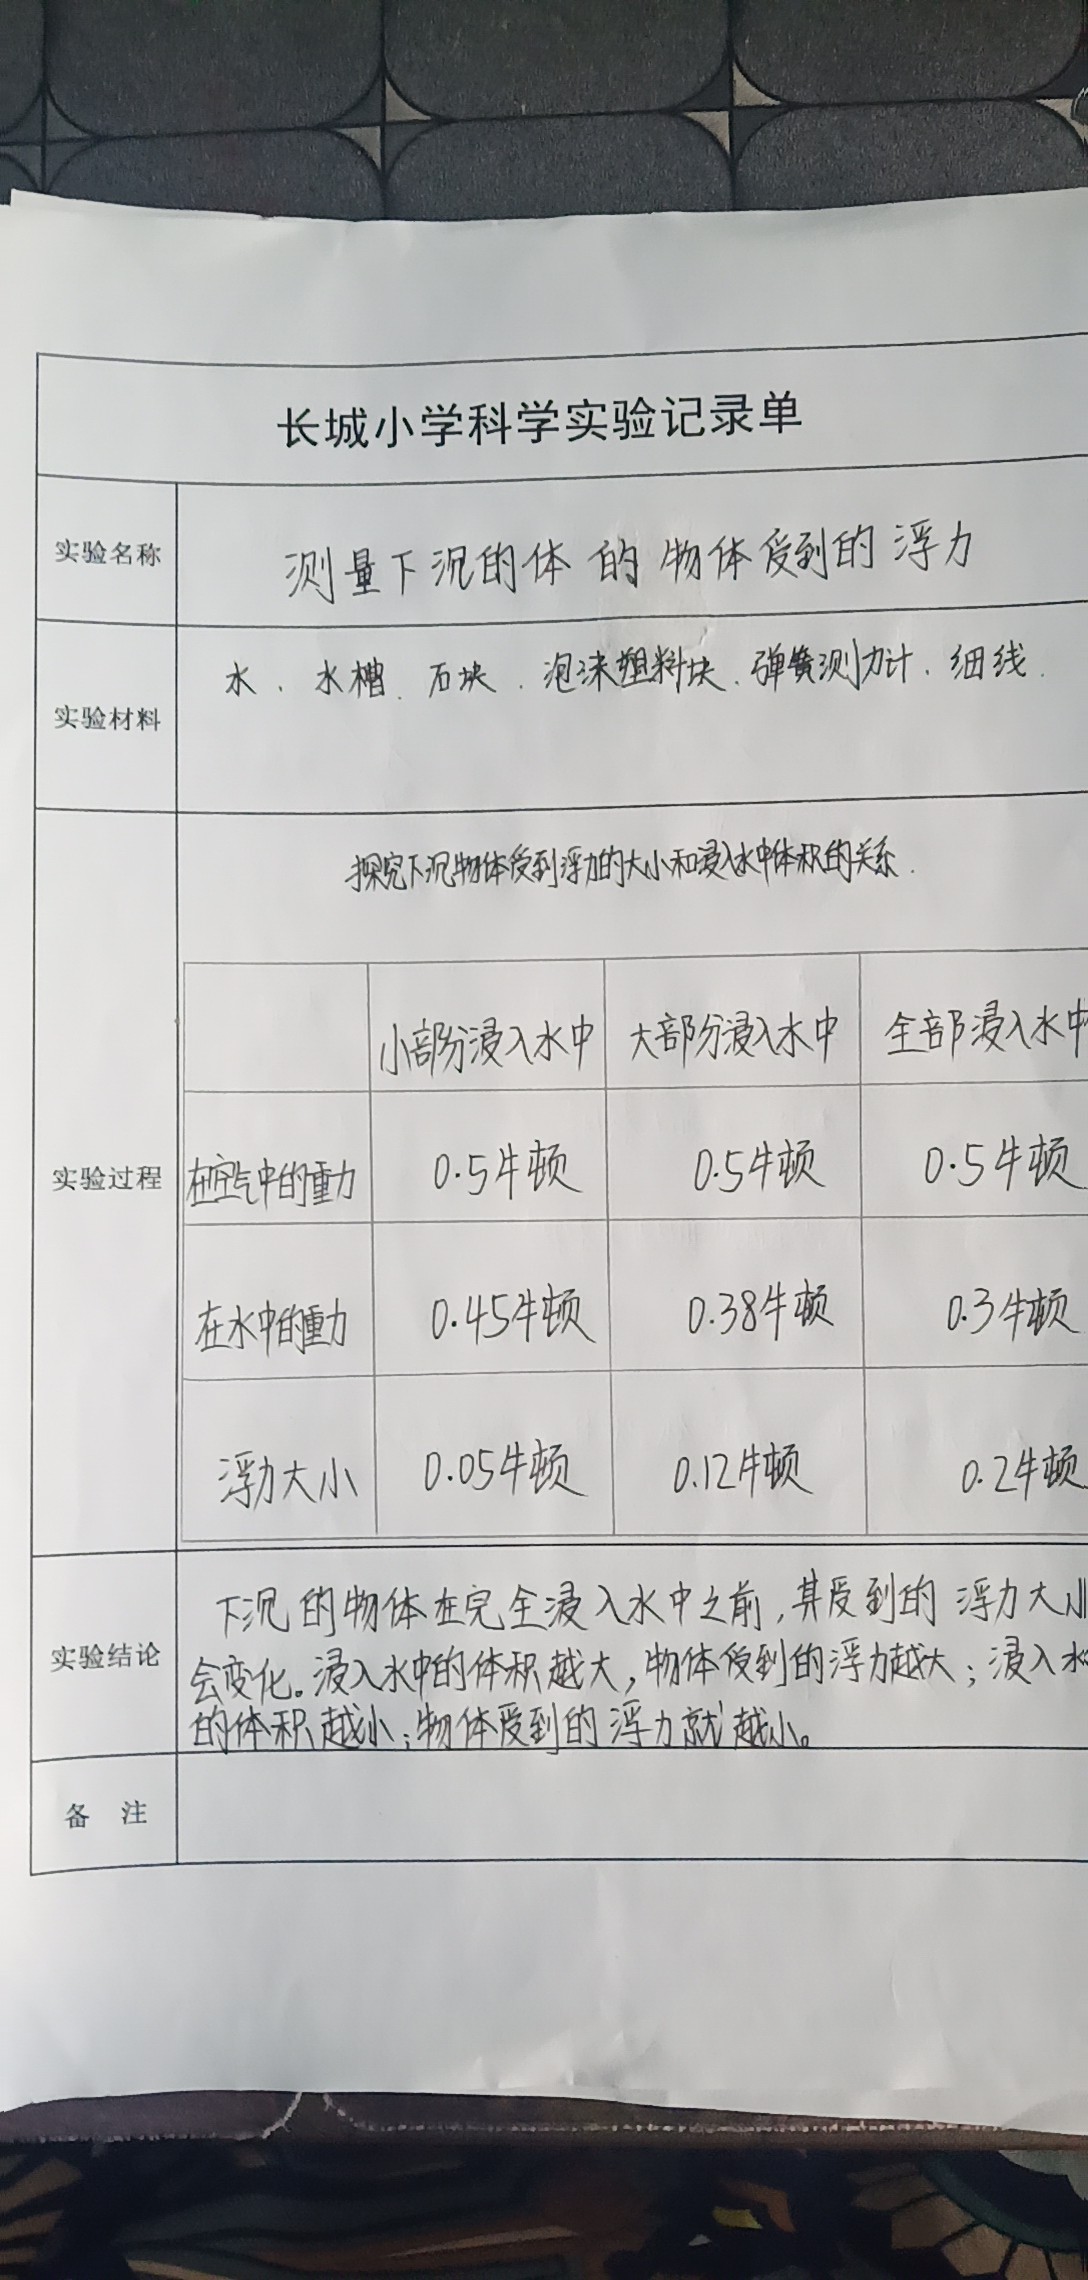 长城小学科学实验记录单
实验名称 测量下沉的体 的 物体受到的 浮力
实验材料 水、水槽、石块、泡沫塑料块、弹簧测力计、细线.
实验过程
探究下沉物体受到浮力的大小和浸入水中体积的关系.
小部分浸入水中 大部分浸入水中 全部浸入水中
在空气中的重力 0.5牛顿 0.5牛顿 0.5牛顿
在水中的重力 0.45牛顿 0.38牛顿 0.3牛顿
浮力大小 0.05牛顿 0.12牛顿 0.2牛顿
实验结论
下沉的物体在完全浸入水中之前,其受到的 浮力大小
会变化。浸入水中的体积越大,物体受到的浮力越大;浸入水
的体积越小;物体受到的浮力就越小。
备 注